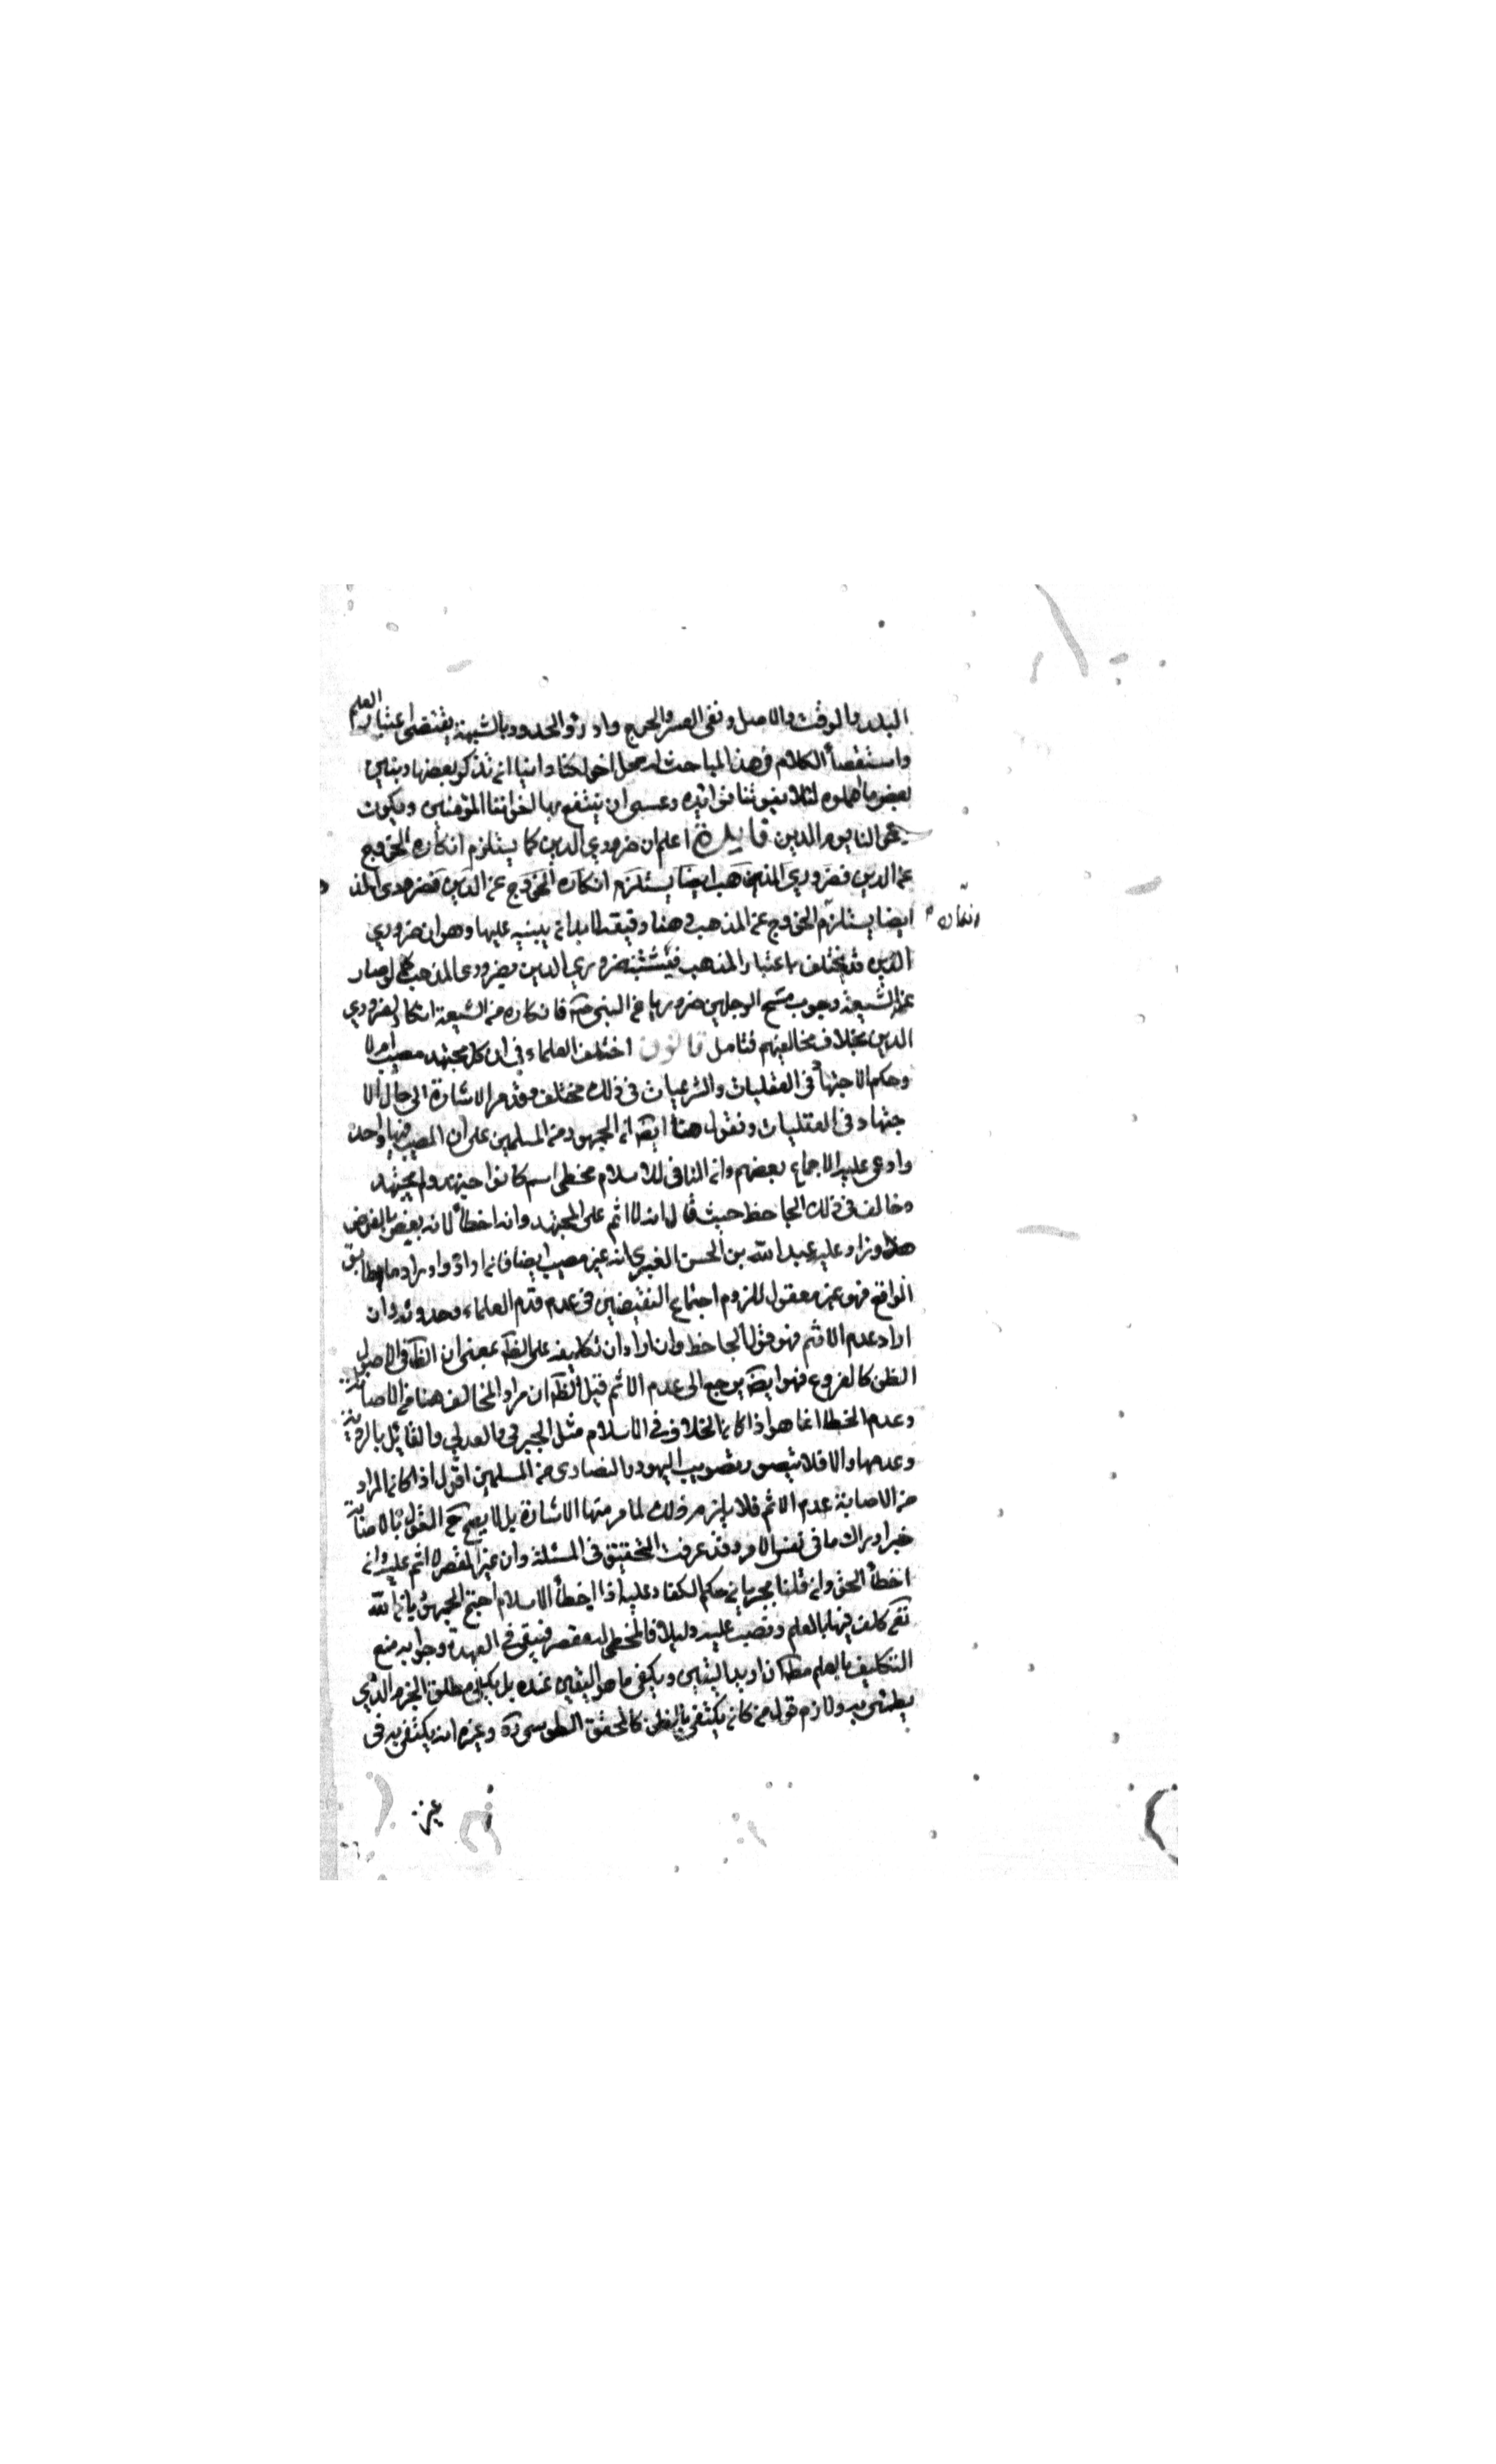 البلد والوقت والاصل ونفى العسر والحرج وادرؤ الحدود بالشبهة يقتضى اعتبار العلم
واستقصأ الكلام فى هذا المباحث له محل اخر لكنا راينا ان نذكر بعضها ونبين
بعض ما اهملوه لئلا يفوتنا فوايده وعسى ان ينتفع بها اخواننا المؤمنين ويكون
لنا يوم الدين فايدة اعلم ان ضرورى الدين كما يستلزم انكاره الخروج
عن الدين فضرورى المذهب ايضا يستلزم انكاره الخروج عن الدين فضرورى المذ
ايضا يستلزم الخروج عن المذهب وهنا دقيقة لا بد ان ينبه عليها وهو ان ضرورى
انكاره
الدين قد يختلف باعتبار المذهب فيشتبه ضرورى الدين بضرورى المذهب كما لو صار
عند الشيعة وجوب مسح الرجلين ضروريا عن النبى ص فانكاره من الشيعة انكار لضرورى
الدين بخلاف مخالفيهم فتامل قانون اختلف العلماء فى ان كل مجتهد مصيب ام لا
وحكم الاجتهاد فى العقليات والشرعيات فى ذلك مختلف وقد مر الاشارة الى حال الا
جتهاد فى العقليات ونقول هنا ايضا ان الجمهور من المسلمين على ان المصيب فيها واحد
وادعى عليه الاجماع بعضهم وان النافى للاسلام مخطى اثم كافر اجتهد ولم يجتهد
وخالف فى ذلك الجاحظ حيث قال انه لا اثم على المجتهد وان اخطأ لانه بعض بالفرض
هذا وزاد عليه عبد الله بن الحسن العنبرى انه مصيب ايضا فان اراد ما يطابق
الواقع فهو غير معقول للزوم اجتماع النقيضين فى عدم قدم العلماء وحدوثه وان
اراد عدم الاثم فهو قول الجاحظ وان اراد ان تكليفه على الظن بمعنى ان الظن فى الاصول
الظن كالفروع فهو ايضا يرجع الى عدم الاثم قيل والظ ان مراد المخالف هنا من الاصابة
وعدم الخطا انما هو اذا كان الخلاف فى الاسلام مثل الجبرى والعدلى والقائل بالرؤية
وعدمها والا فلا يتصور تصويب اليهود والنصارى من المسلمين اقول اذا كان المراد
من الاصابة عدم الاثم فلا يلزم ذلك لما مر منها الاشارة بل لا يصح ح القول بالاصابة
خبر ادراك ما فى نفس الامر وقد عرفت التحقيق فى المسئلة وان غير المقصر لا اثم عليه وان
اخطأ الحق وان قلنا بجريان حكم الكفار عليه اذا اخطأ الاسلام احتج الجمهور بان الله
تعم كلف فيها بالعلم ونصب عليه دليلا فالمخطى له مقصر فيبقى فى العهدة وجوابه منع
التكليف بالعلم مط ان اريد اليقين ويكفى ما هو اليقين عنده بل يكفى مطلق الجزم الذى
يطمئن به ولازم قول من كان يكتفى بالظن كالمحقق الطوسى ره وغيره انه يكتفى به فى
غير